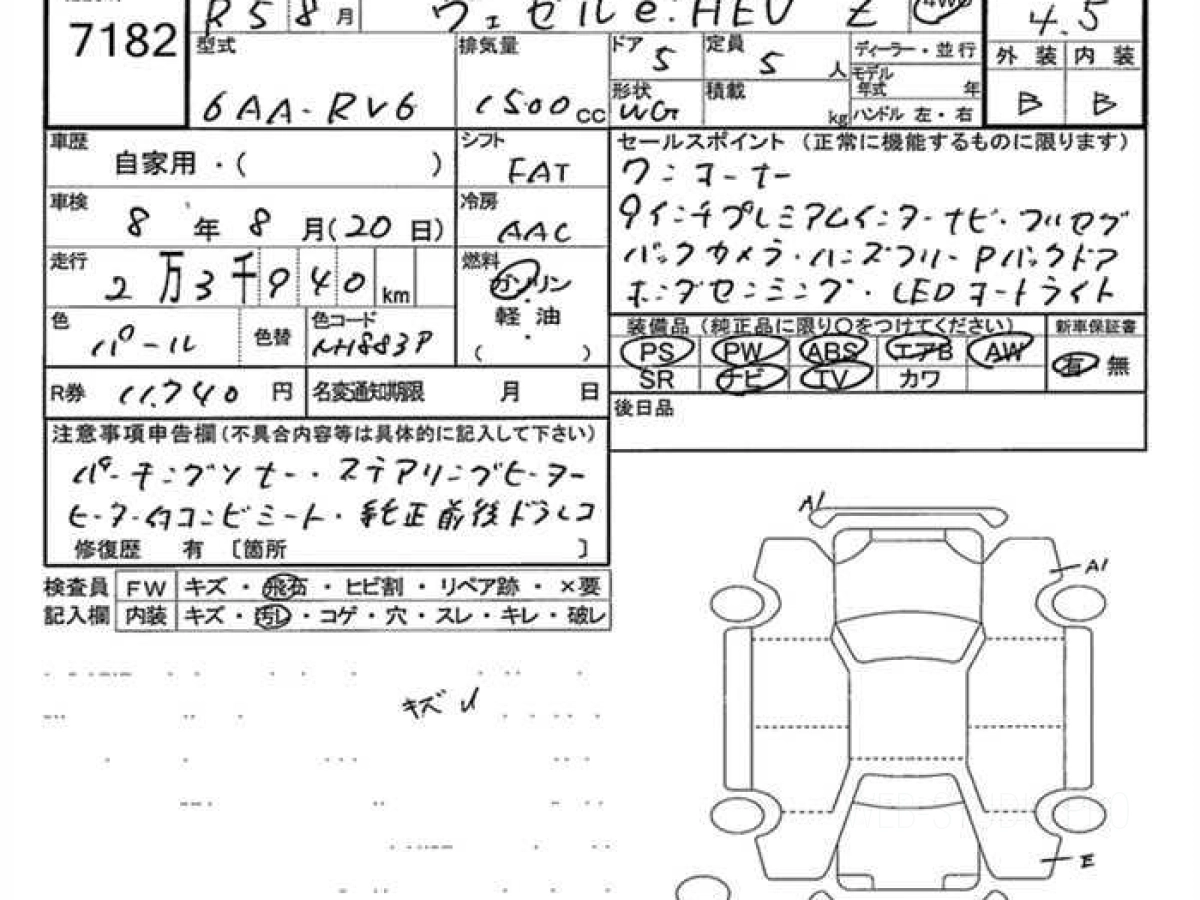 7182
R5 8月
ヴェゼル e:HEV Z
4WD
4.5
型式
6AA-RV6
排気量
1500cc
ドア 5
定員 5 人
形状 WG
積載 kg
ディーラー・並行
モデル年式 年
ハンドル 左・右
外装 内装
B B
車歴
自家用・( )
シフト
FAT
車検
8年8月(20日)
冷房
AAC
走行
2万3千940km
燃料
ガソリン
・
軽油
・
( )
色
パール
色替
色コード
NH883P
R券 11,740円
名変通知期限 月 日
セールスポイント(正常に機能するものに限ります)
ワンオーナー
9インチプレミアムインターナビ・フルセグ
バックカメラ・ハンズフリーPバックドア
ホンダセンシング・LEDオートライト
装備品(純正品に限り○をつけてください) 新車保証書
PS PW ABS エアB AW 有 無
SR ナビ TV カワ
後日品
注意事項申告欄(不具合内容等は具体的に記入して下さい)
パーキングソナー・ステアリングヒーター
ヒーター付コンビシート・純正前後ドラレコ
修復歴 有 〔箇所 〕
検査員記入欄
FW キズ・飛石・ヒビ割・リペア跡・×要
内装 キズ・汚レ・コゲ・穴・スレ・キレ・破レ
キズ
A1
A1
E